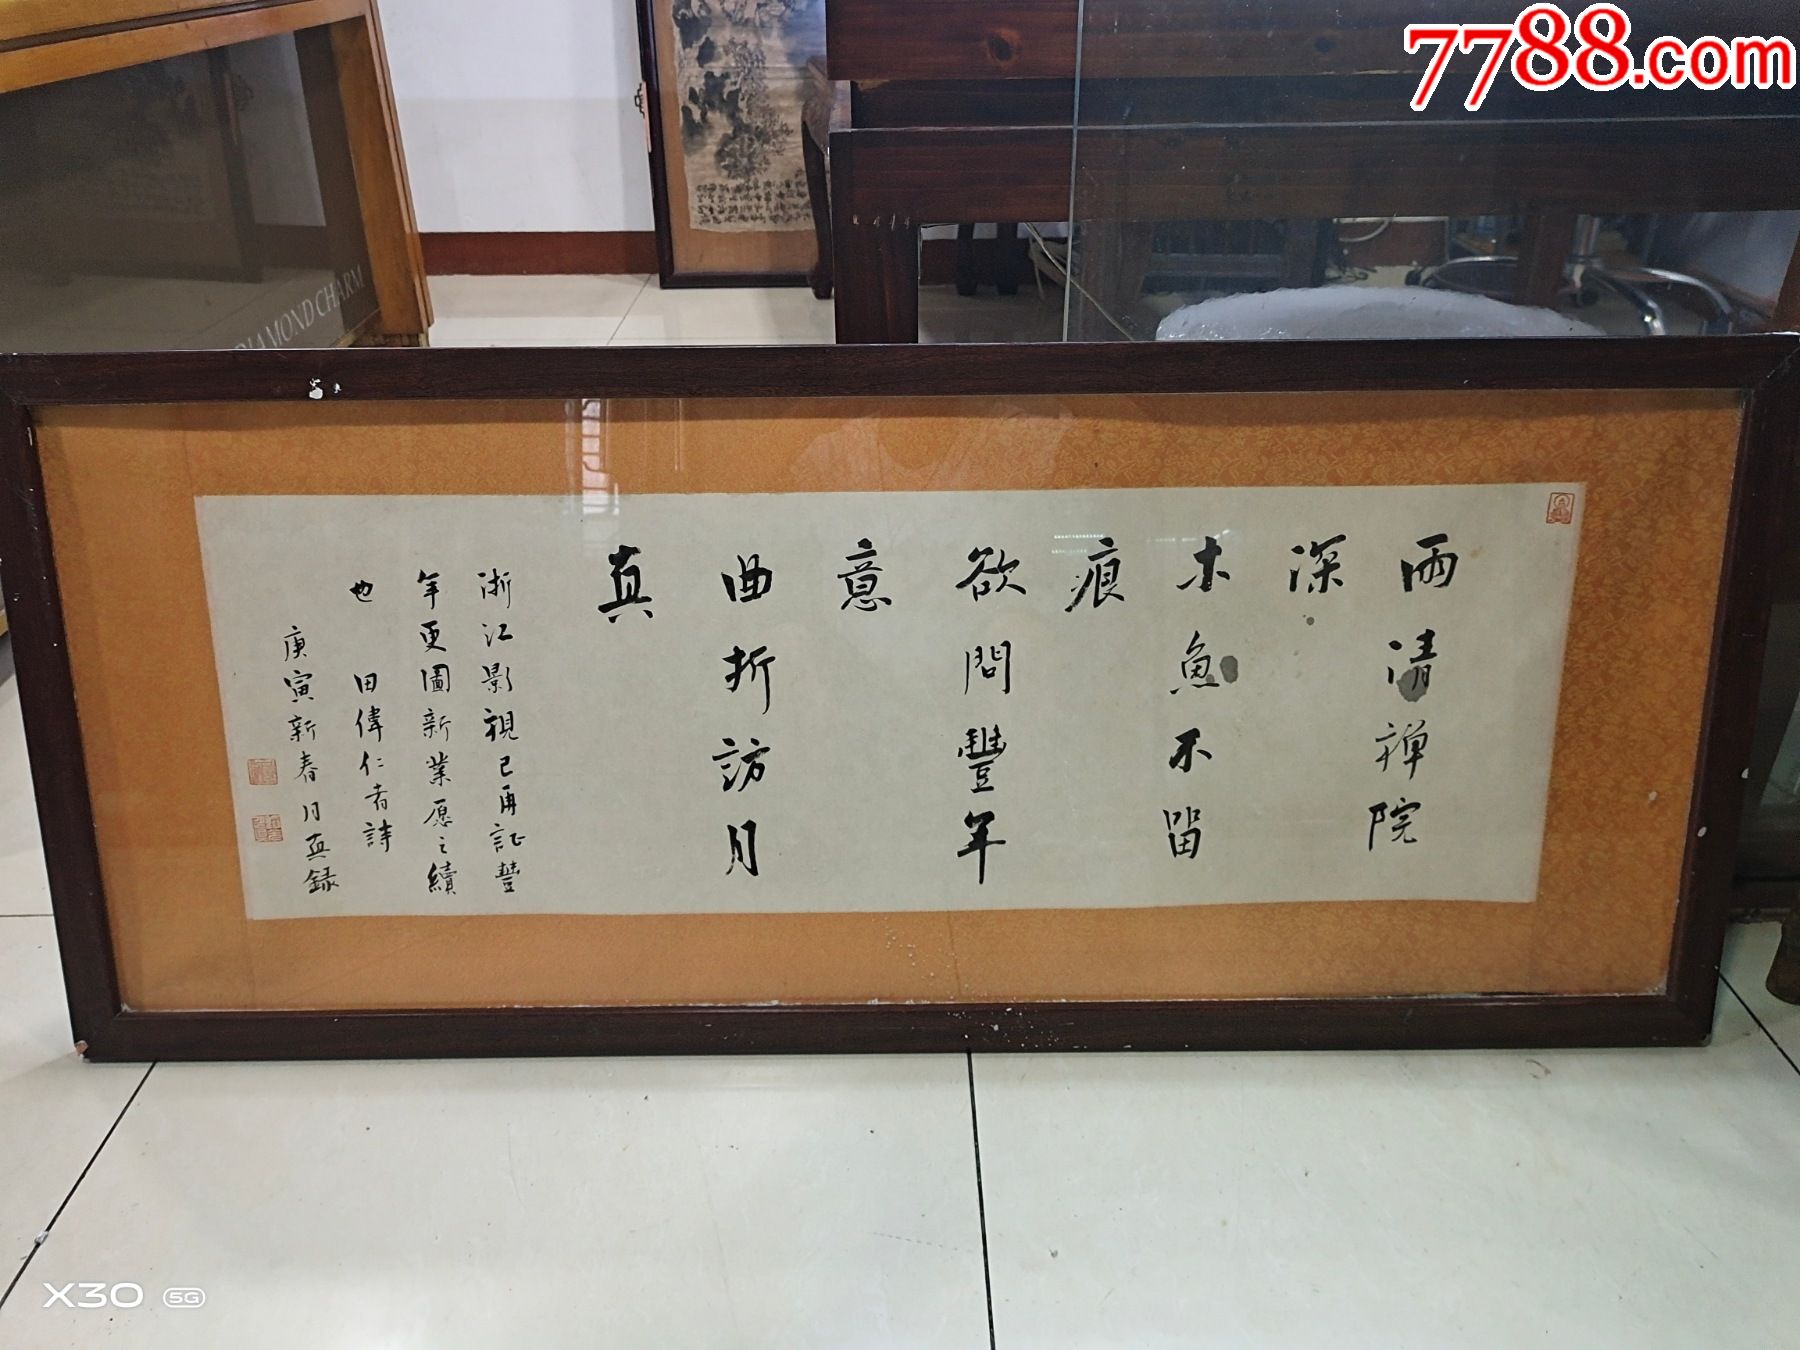 7788.com
DIAMOND CHARM
雨清禅院
深
木魚不留
痕
欲問豐年
意
曲折訪月
真
浙江影視已再証豐
年更圖新業愿之續
也 田偉仁者詩
庚寅新春月真録
X30 5G